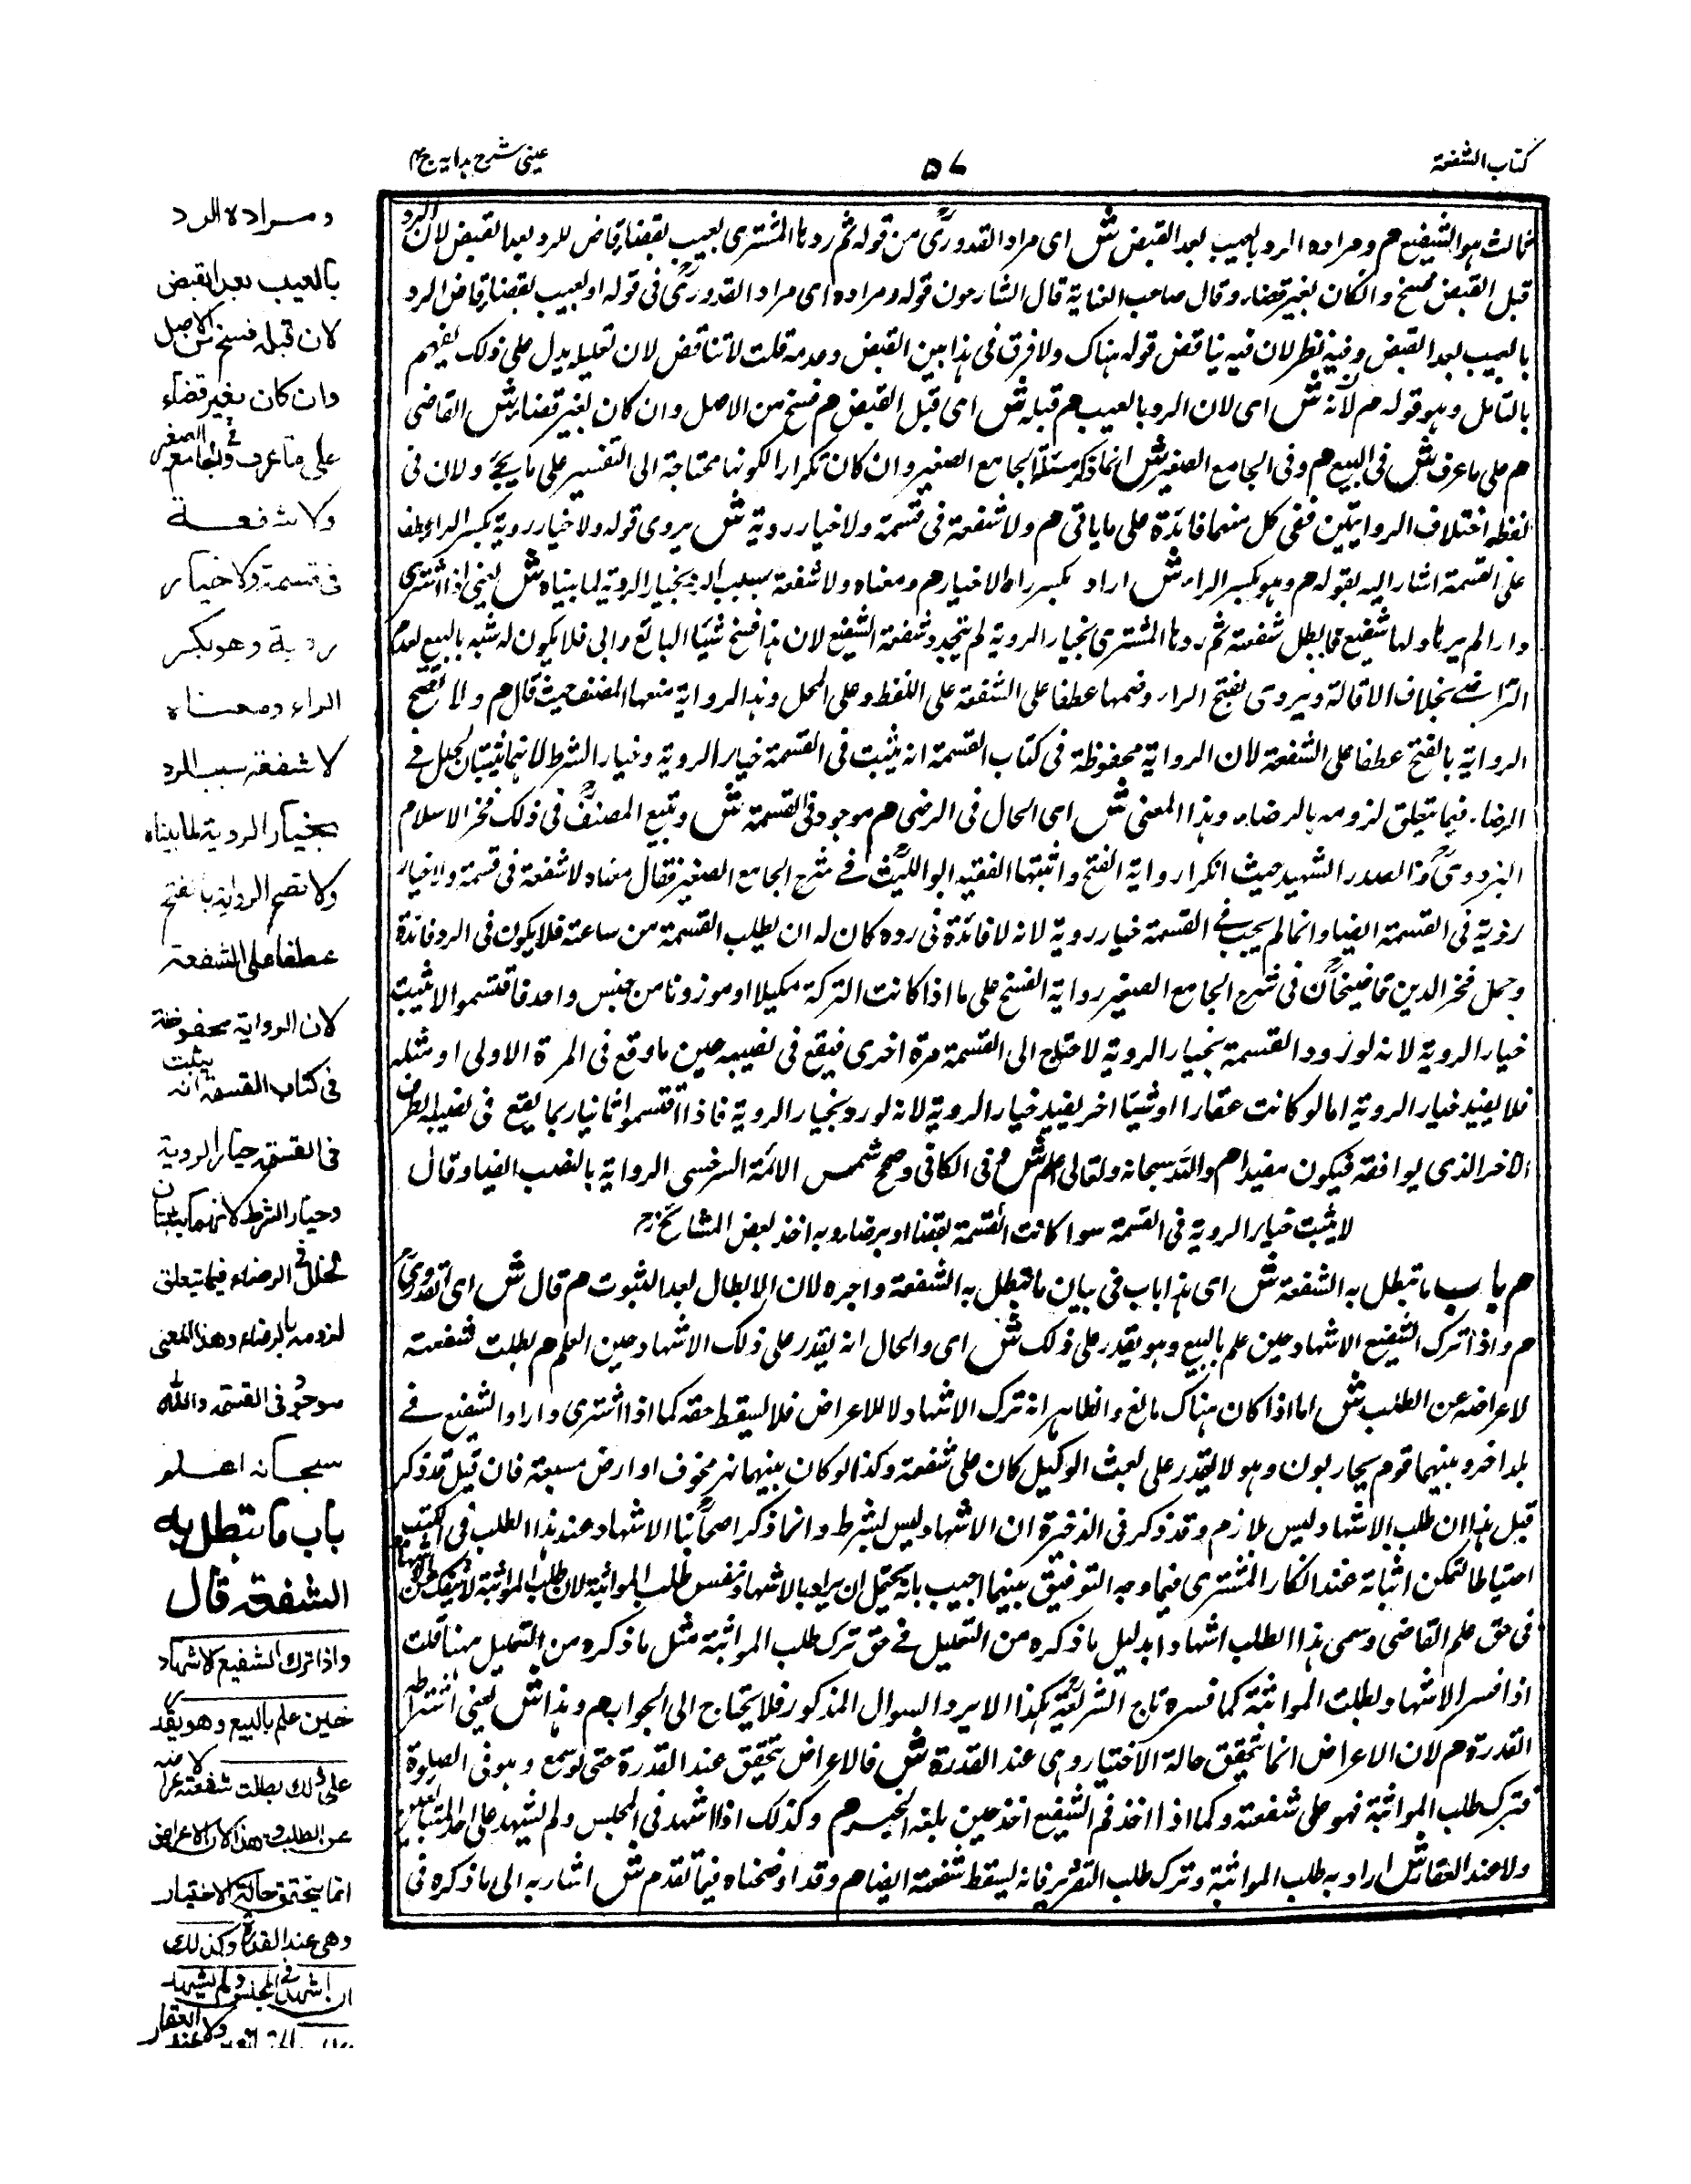 كتاب الشفعة
٥٧
عينى شرح هدايه ج ٤
ثالث هو الشفيع هم ومراده الرد بالعيب بعد القبض ش اى مراد القدورى من قوله ثم ردها المشترى بعيب بقضاء قاض للرد بعد القبض لان الرد
قبل القبض فسخ وان كان بغير قضاء وقال صاحب العناية قال الشارحون قوله ومراده اى مراد القدورى فى قوله او بعيب بقضاء قاض الرد
بالعيب بعد القبض وفيه نظر لان فيه يناقض قوله هناك ولا فرق فى هذا بين القبض وعدمه قلت لا تناقض لان تعليله يدل على ذلك يفهم
بالتامل وهو قوله م لانه ش اى لان الرد بالعيب م قبله ش اى قبل القبض م فسخ من الاصل وان كان بغير قضاء ش القاضى
م على ما عرف ش فى البيع م وفى الجامع الصغير ش انما ذكر مسئلة الجامع الصغير وان كان تكرارا لكونها محتاجة الى التفسير على ما يجئ ولان فى
لفظه اختلاف الروايتين ففى كل منهما فائدة على ما ياتى م ولا شفعة فى قسمة ولا خيار روية ش يروى قوله ولا خيار روية بكسر الراء عطفا
على القسمة اشار اليه بقوله م وهو بكسر الراء ش اراد بكسر راء لا خيار م ومعناه ولا شفعة بسبب الرد بخيار الروية لما بيناه ش يعنى اذا اشترى
دارا لم يرها ولها شفيع فابطل شفعته ثم ردها المشترى بخيار الروية لم يتجدد شفعة الشفيع لان هذا فسخ شئنا البائع وابى فلا يكون له شبه بالبيع لعدم
التراضى بخلاف الاقالة ويروى بفتح الراء وضمها عطفا على الشفعة على اللفظ وعلى المحل وهذه الرواية منعها المصنف حيث قال م ولا تصح
الرواية بالفتح عطفا على الشفعة لان الرواية محفوظة فى كتاب القسمة انه يثبت فى القسمة خيار الروية وخيار الشرط لانهما يثبتان لخلل فى
الرضاء فيما يتعلق لزومه بالرضاء وهذا المعنى ش اى الحال فى الرضى م موجود فى القسمة ش وتبع المصنف فى ذلك فخر الاسلام
البزدوى والصدر الشهيد حيث انكرا رواية الفتح واثبتها الفقيه ابو الليث فى شرح الجامع الصغير فقال معناه لا شفعة فى قسمة ولا خيار
رؤية فى القسمة ايضا وانما لم يجب فى القسمة خيار روية لانه لا فائدة فى رده كان له ان يطلب القسمة من ساعته فلا يكون فى الرد فائدة
وحمل فخر الدين قاضيخان فى شرح الجامع الصغير رواية الفتح على ما اذا كانت التركة مكيلا او موزونا من جنس واحد فاقتسموا لا تثبت
خيار الروية لانه لو ردد القسمة بخيار الروية لاحتاج الى القسمة مرة اخرى فيقع فى نصيبه عين ما وقع فى المرة الاولى او مثله
فلا يفيد خيار الروية اما لو كانت عقارا او شيئا اخر يفيد خيار الروية لانه لو رد بخيار الروية فاذا اقتسموا ثانيا ربما يقع فى نصيبه الطرف
الاخر الذى يوافقه فيكون مفيدا م والله سبحانه وتعالى اعلم ش وفى الكافى وصحح شمس الائمة السرخسى الرواية بالنصب ايضا وقال
لا يثبت خيار الروية فى القسمة سواء كانت القسمة بقضاء او برضاء وبه اخذ بعض المشائخ رح
م باب ما تبطل به الشفعة ش اى هذا باب فى بيان ما تبطل به الشفعة واخره لان الابطال بعد الثبوت م قال ش اى القدورى
م واذا ترك الشفيع الاشهاد حين علم بالبيع وهو يقدر على ذلك ش اى والحال انه يقدر على ذلك الاشهاد حين العلم م بطلت شفعته
لاعراضه عن الطلب ش اما اذا كان هناك مانع والظاهر انه ترك الاشهاد لا للاعراض فلا يسقط حقه كما اذا اشترى دارا والشفيع فى
بلد اخر وبينهما قوم يحاربون وهو لا يقدر على بعث الوكيل كان على شفعته وكذا لو كان بينهما نهر مخوف او ارض مسبعة فان قيل قد ذكر
قبل هذا ان طلب الاشهاد ليس بلازم وقد ذكر فى الذخيرة ان الاشهاد ليس بشرط وانما ذكر اصحابنا الاشهاد عند هذا الطلب فى الكتب
احتياطا لتمكن اثباته عند انكار المشترى فيما وجه التوفيق بينهما اجيب بانه يحتمل ان يراد بالاشهاد نفس طلب المواثبة لان طلب المواثبة لا ينفك عن الاشهاد
فى حق علم القاضى وسمى هذا الطلب اشهادا بدليل ما ذكره من التعليل فى حق ترك طلب المواثبة مثل ما ذكره من التعليل هنا قلت
اذا فسر الاشهاد بطلب المواثبة كما فسره تاج الشريعة هكذا لا يرد السوال المذكور فلا يحتاج الى الجواب م وهذا ش يعنى اشتراط
القدرة م لان الاعراض انما يتحقق حالة الاختيار وهى عند القدرة ش فالاعراض يتحقق عند القدرة حتى لو سمع وهو فى الصلوة
فترك طلب المواثبة فهو على شفعته وكما اذا اخذ فم الشفيع اخذ حين بلغه الخبر م وكذلك اذا اشهد فى المجلس ولم يشهد على احد المتبايعين
ولا عند العقار ش اراد به طلب المواثبة وترك طلب التقرير فانه يسقط شفعته ايضا م وقد اوضحناه فيما تقدم ش اشار به الى ما ذكره فى
ومراده الرد
بالعيب بعد القبض
لان قبله فسخ من الاصل
وان كان بغير قضاء
على ما عرف وفى الجامع الصغير
ولا شفعة
فى قسمة ولا خيار
روية وهو بكسر
الراء ومعناه
لا شفعة بسبب الرد
بخيار الروية لما بيناه
ولا تصح الرواية بالفتح
عطفا على الشفعة
لان الرواية محفوظة
فى كتاب القسمة انه يثبت
فى القسمة خيار الروية
وخيار الشرط لانهما يثبتان
لخلل فى الرضاء فيما يتعلق
لزومه بالرضاء وهذا المعنى
موجود فى القسمة والله
سبحانه اعلم
باب ما تبطل به
الشفعة قال
واذا ترك الشفيع الاشهاد
حين علم بالبيع وهو يقدر
على ذلك بطلت شفعته لاعراضه
عن الطلب وهذا لان الاعراض
انما يتحقق حالة الاختيار
وهى عند القدرة وكذلك
ان اشهد فى المجلس ولم يشهد
ولا عند العقار